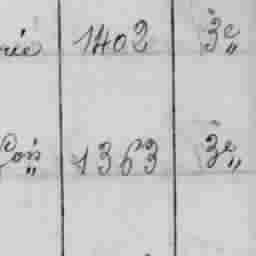 rie 1402 3e„
Con„ 1363 3e„